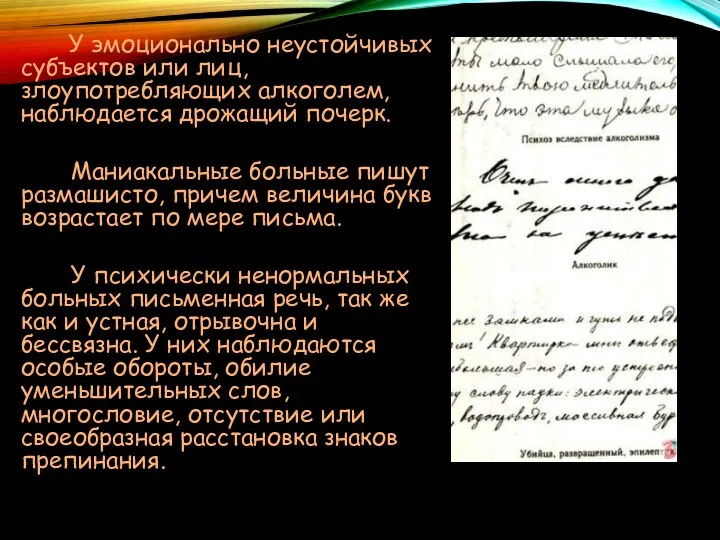 У эмоционально неустойчивых
субъектов или лиц,
злоупотребляющих алкоголем,
наблюдается дрожащий почерк.
Маниакальные больные пишут
размашисто, причем величина букв
возрастает по мере письма.
У психически ненормальных
больных письменная речь, так же
как и устная, отрывочна и
бессвязна. У них наблюдаются
особые обороты, обилие
уменьшительных слов,
многословие, отсутствие или
своеобразная расстановка знаков
препинания.
мало слышала его
что эта музыка
Психоз вследствие алкоголизма
Очень много
Алкоголик
замками и
Квартирка
большая - но за то
слову
водопроводъ, массивная
Убийца, развращенный, эпилептик